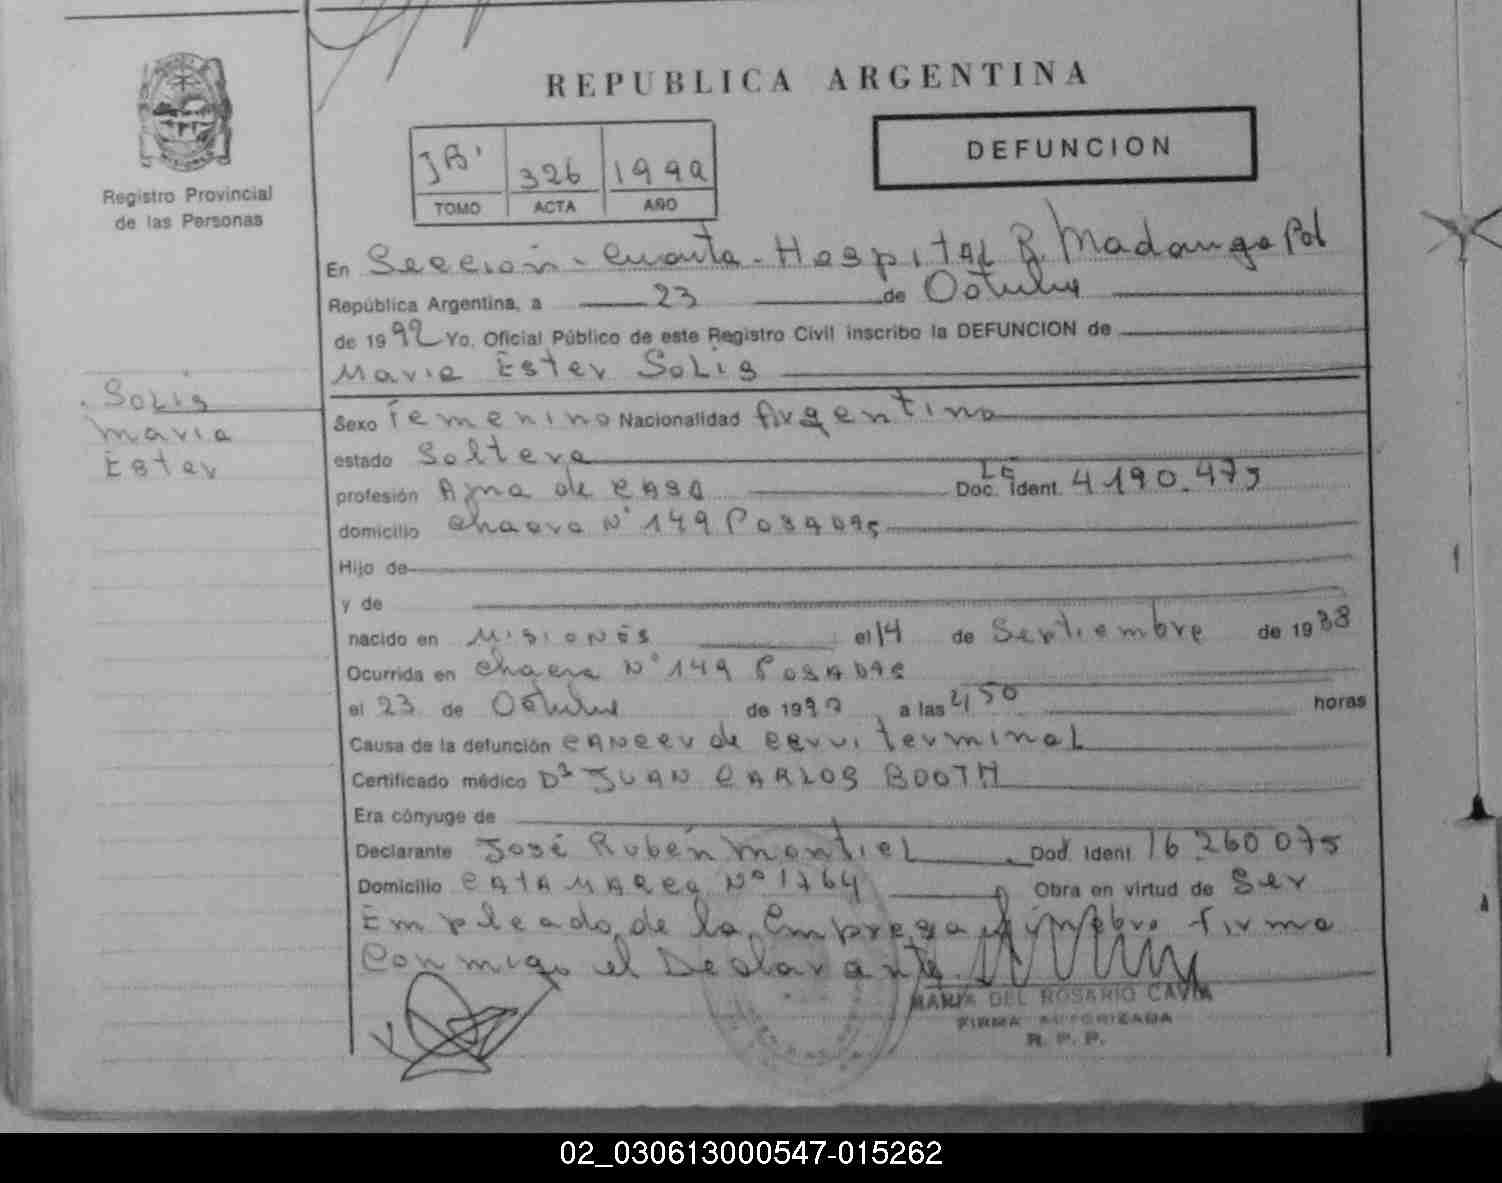 REPUBLICA ARGENTINA
DEFUNCION
Registro Provincial
de las Personas
326 1992
TOMO ACTA AÑO
En Seccion - Cuarta - Hospital R. Madariaga Pos
República Argentina, a 23 de Octubre
de 1992 Yo, Oficial Público de este Registro Civil inscribo la DEFUNCION de
Maria Ester Solis
Solis
Maria
Ester
Sexo Femenino Nacionalidad Argentina
estado Soltera
profesión Ama de casa Doc. Ident. 4.190.475
domicilio Chacra N° 149 Posadas
Hijo de
y de
nacido en Misiones el 14 de Septiembre de 1938
Ocurrida en Chacra N° 149 Posadas
el 23 de Octubre de 1992 a las 4,50 horas
Causa de la defunción Cancer de Cervi terminal
Certificado médico Dr JUAN CARLOS BOOTH
Era cónyuge de
Declarante José Rubén Montiel Doc. Ident 16.260.075
Domicilio Catamarca N° 1764 Obra en virtud de Ser
Empleado de la Empresa funebre firma
Conmigo el Declarante.
MARIA DEL ROSARIO CAVIA
FIRMA AUTORIZADA
R. P. P.
02_030613000547-015262